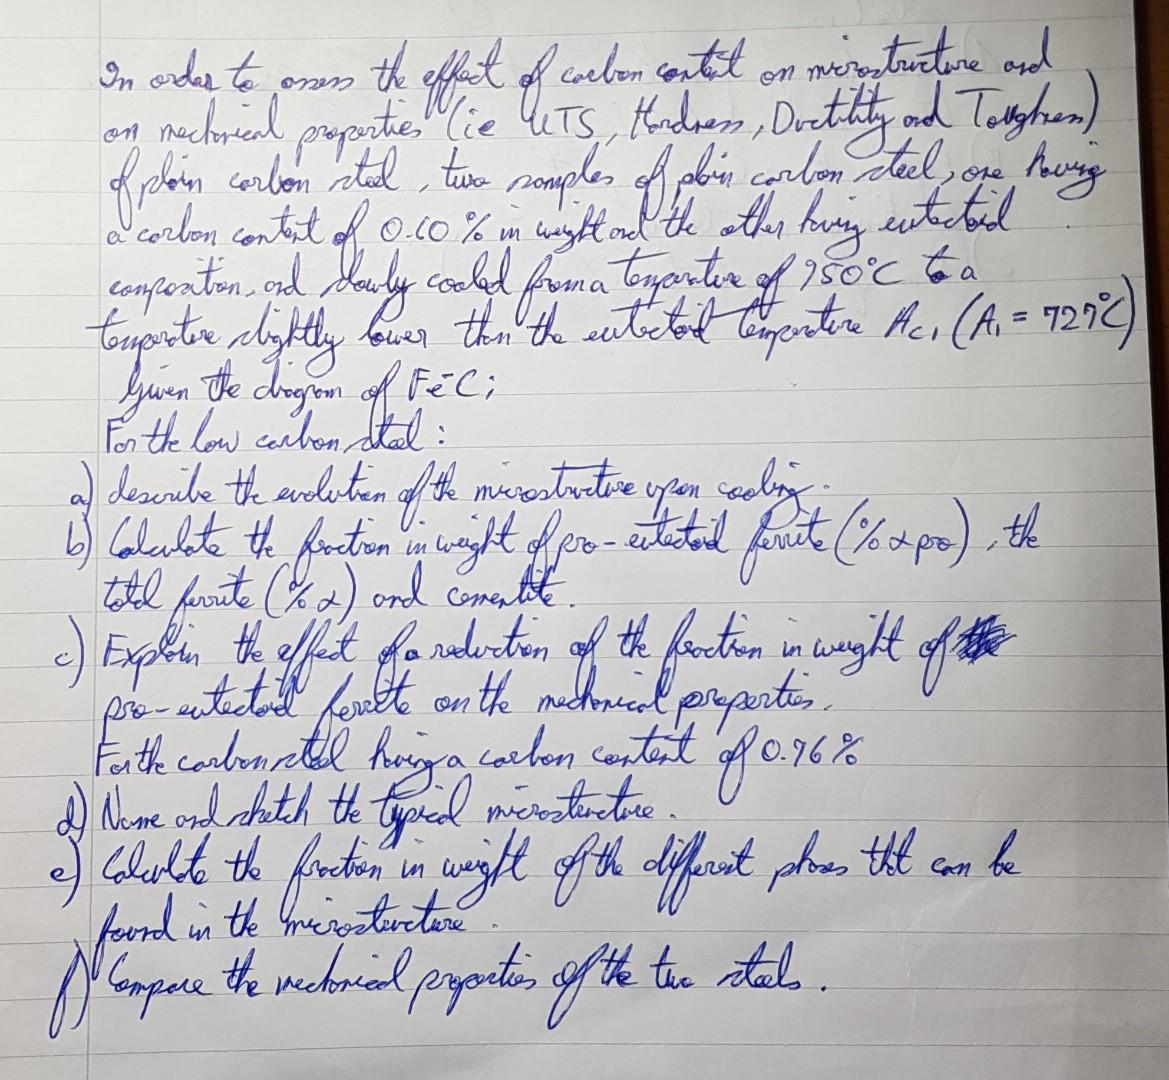 In order to assess the effect of carbon content on microstructure and
on mechanical properties (ie UTS, Hardness, Ductility and Toughness)
of plain carbon steel, two samples of plain carbon steel, one having
a carbon content of % in weight and the other having eutectoid
composition, and slowly cooled from a temperature of 950°C to a
temperature slightly lower than the eutectoid temperature Ac₁ (A₁ = 727°C)
Given the diagram of Fe-C;
For the low carbon steel:
a) describe the evolution of the microstructure upon cooling.
b) Calculate the fraction in weight of pro-eutectoid ferrite (% α pro), the
total ferrite (% α) and cementite.
c) Explain the effect of a reduction of the fraction in weight of
pro-eutectoid ferrite on the mechanical properties.
For the carbon steel having a carbon content of 0.76%
d) Name and sketch the typical microstructure.
e) Calculate the fraction in weight of the different phases that can be
found in the microstructure.
f) Compare the mechanical properties of the two steels.